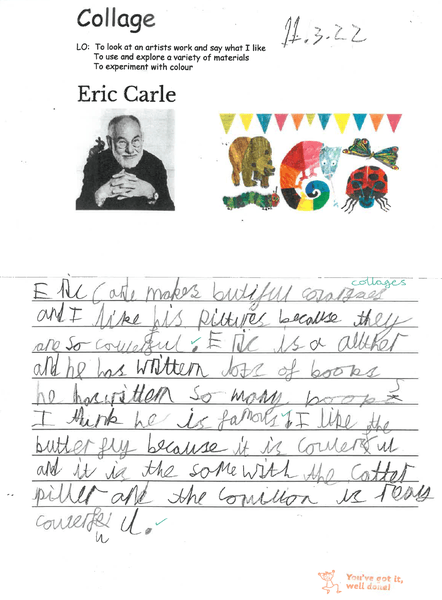 Collage
11.3.22
LO: To look at an artists work and say what I like
To use and explore a variety of materials
To experiment with colour
Eric Carle
collages
Eric Carle makes butiful
and I like his pictures because they
are so coulerful. Eric is a
and he has written lots of books
he has written so many books
I think he is famous. I like the
butterfly because it is coulerful
and it is the same with the catter
piller and the comilion is
coulerful.
You've got it,
well done!